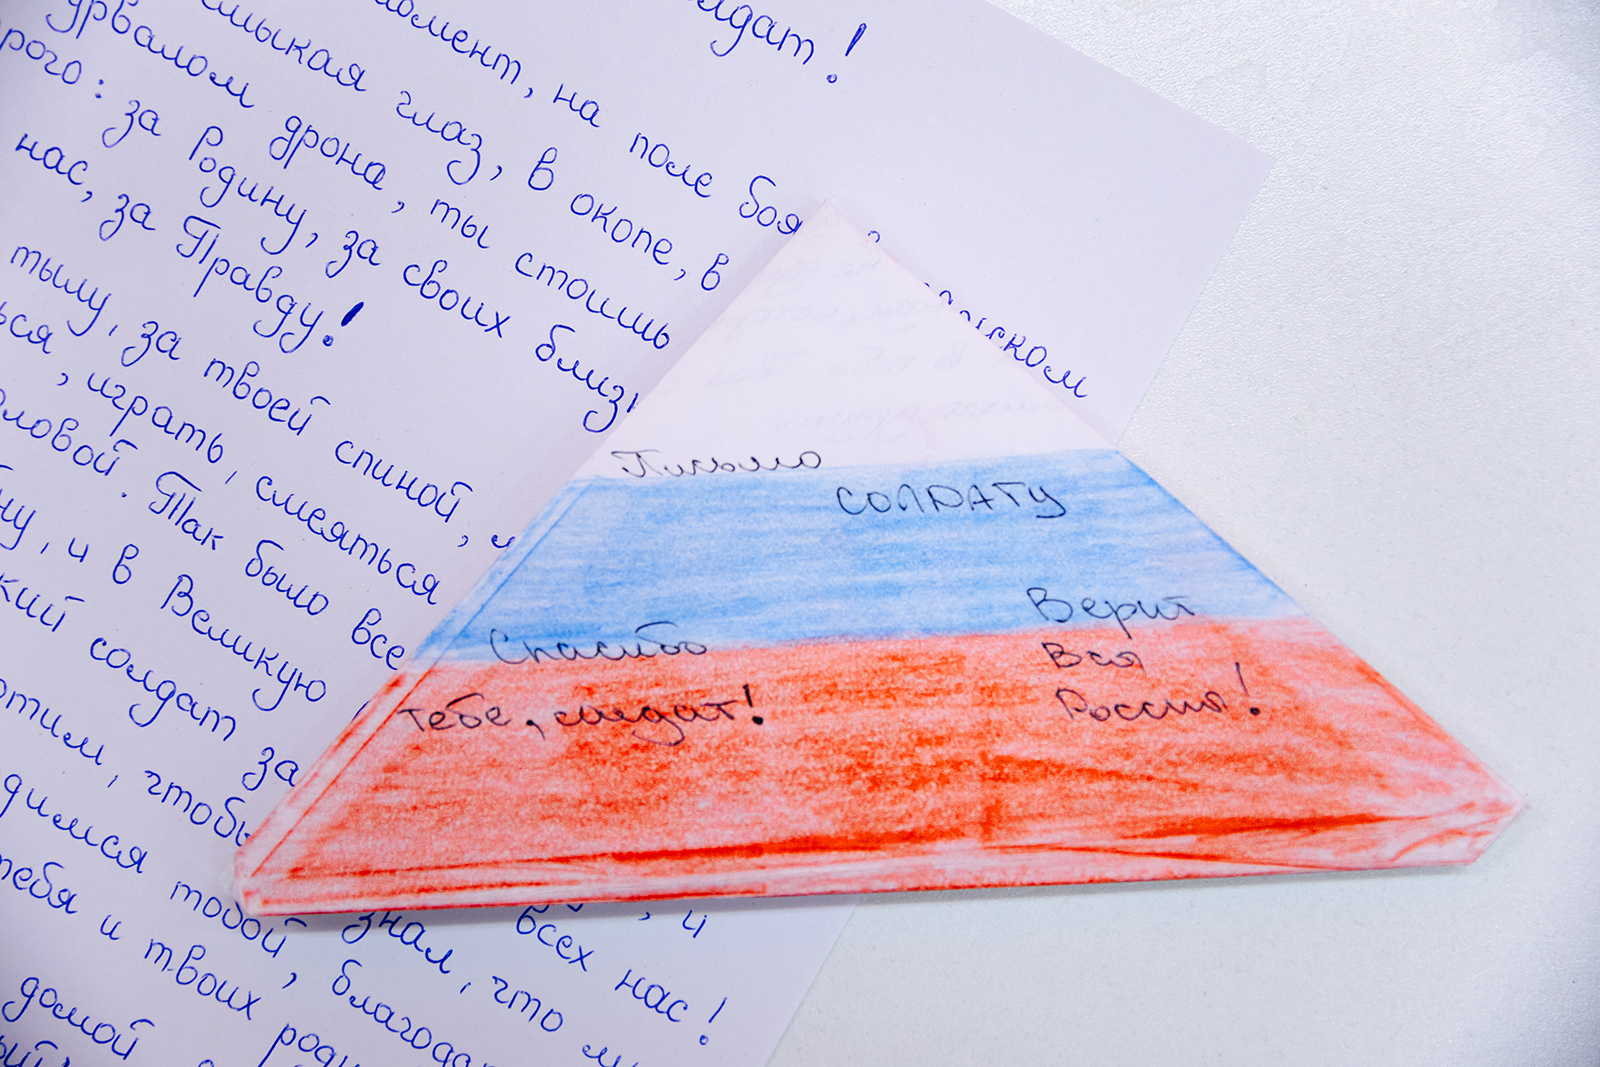 лдат!
момент, на поле боя
смыкая глаз, в окопе, в
урвалом дрона, ты стоишь
рого: за Родину, за своих близк
нас, за Правду!
тылу, за твоей спиной,
ься, играть, смеяться
оловой. Так было все
ну, и в Великую
кий солдат за
отим, чтобы
димся тобой,
знал, что
тебя и твоих
благодар
домой
всех нас!
ском
Письмо
СОЛДАТУ
Спасибо
тебе, солдат!
Верит
Вся
Россия!